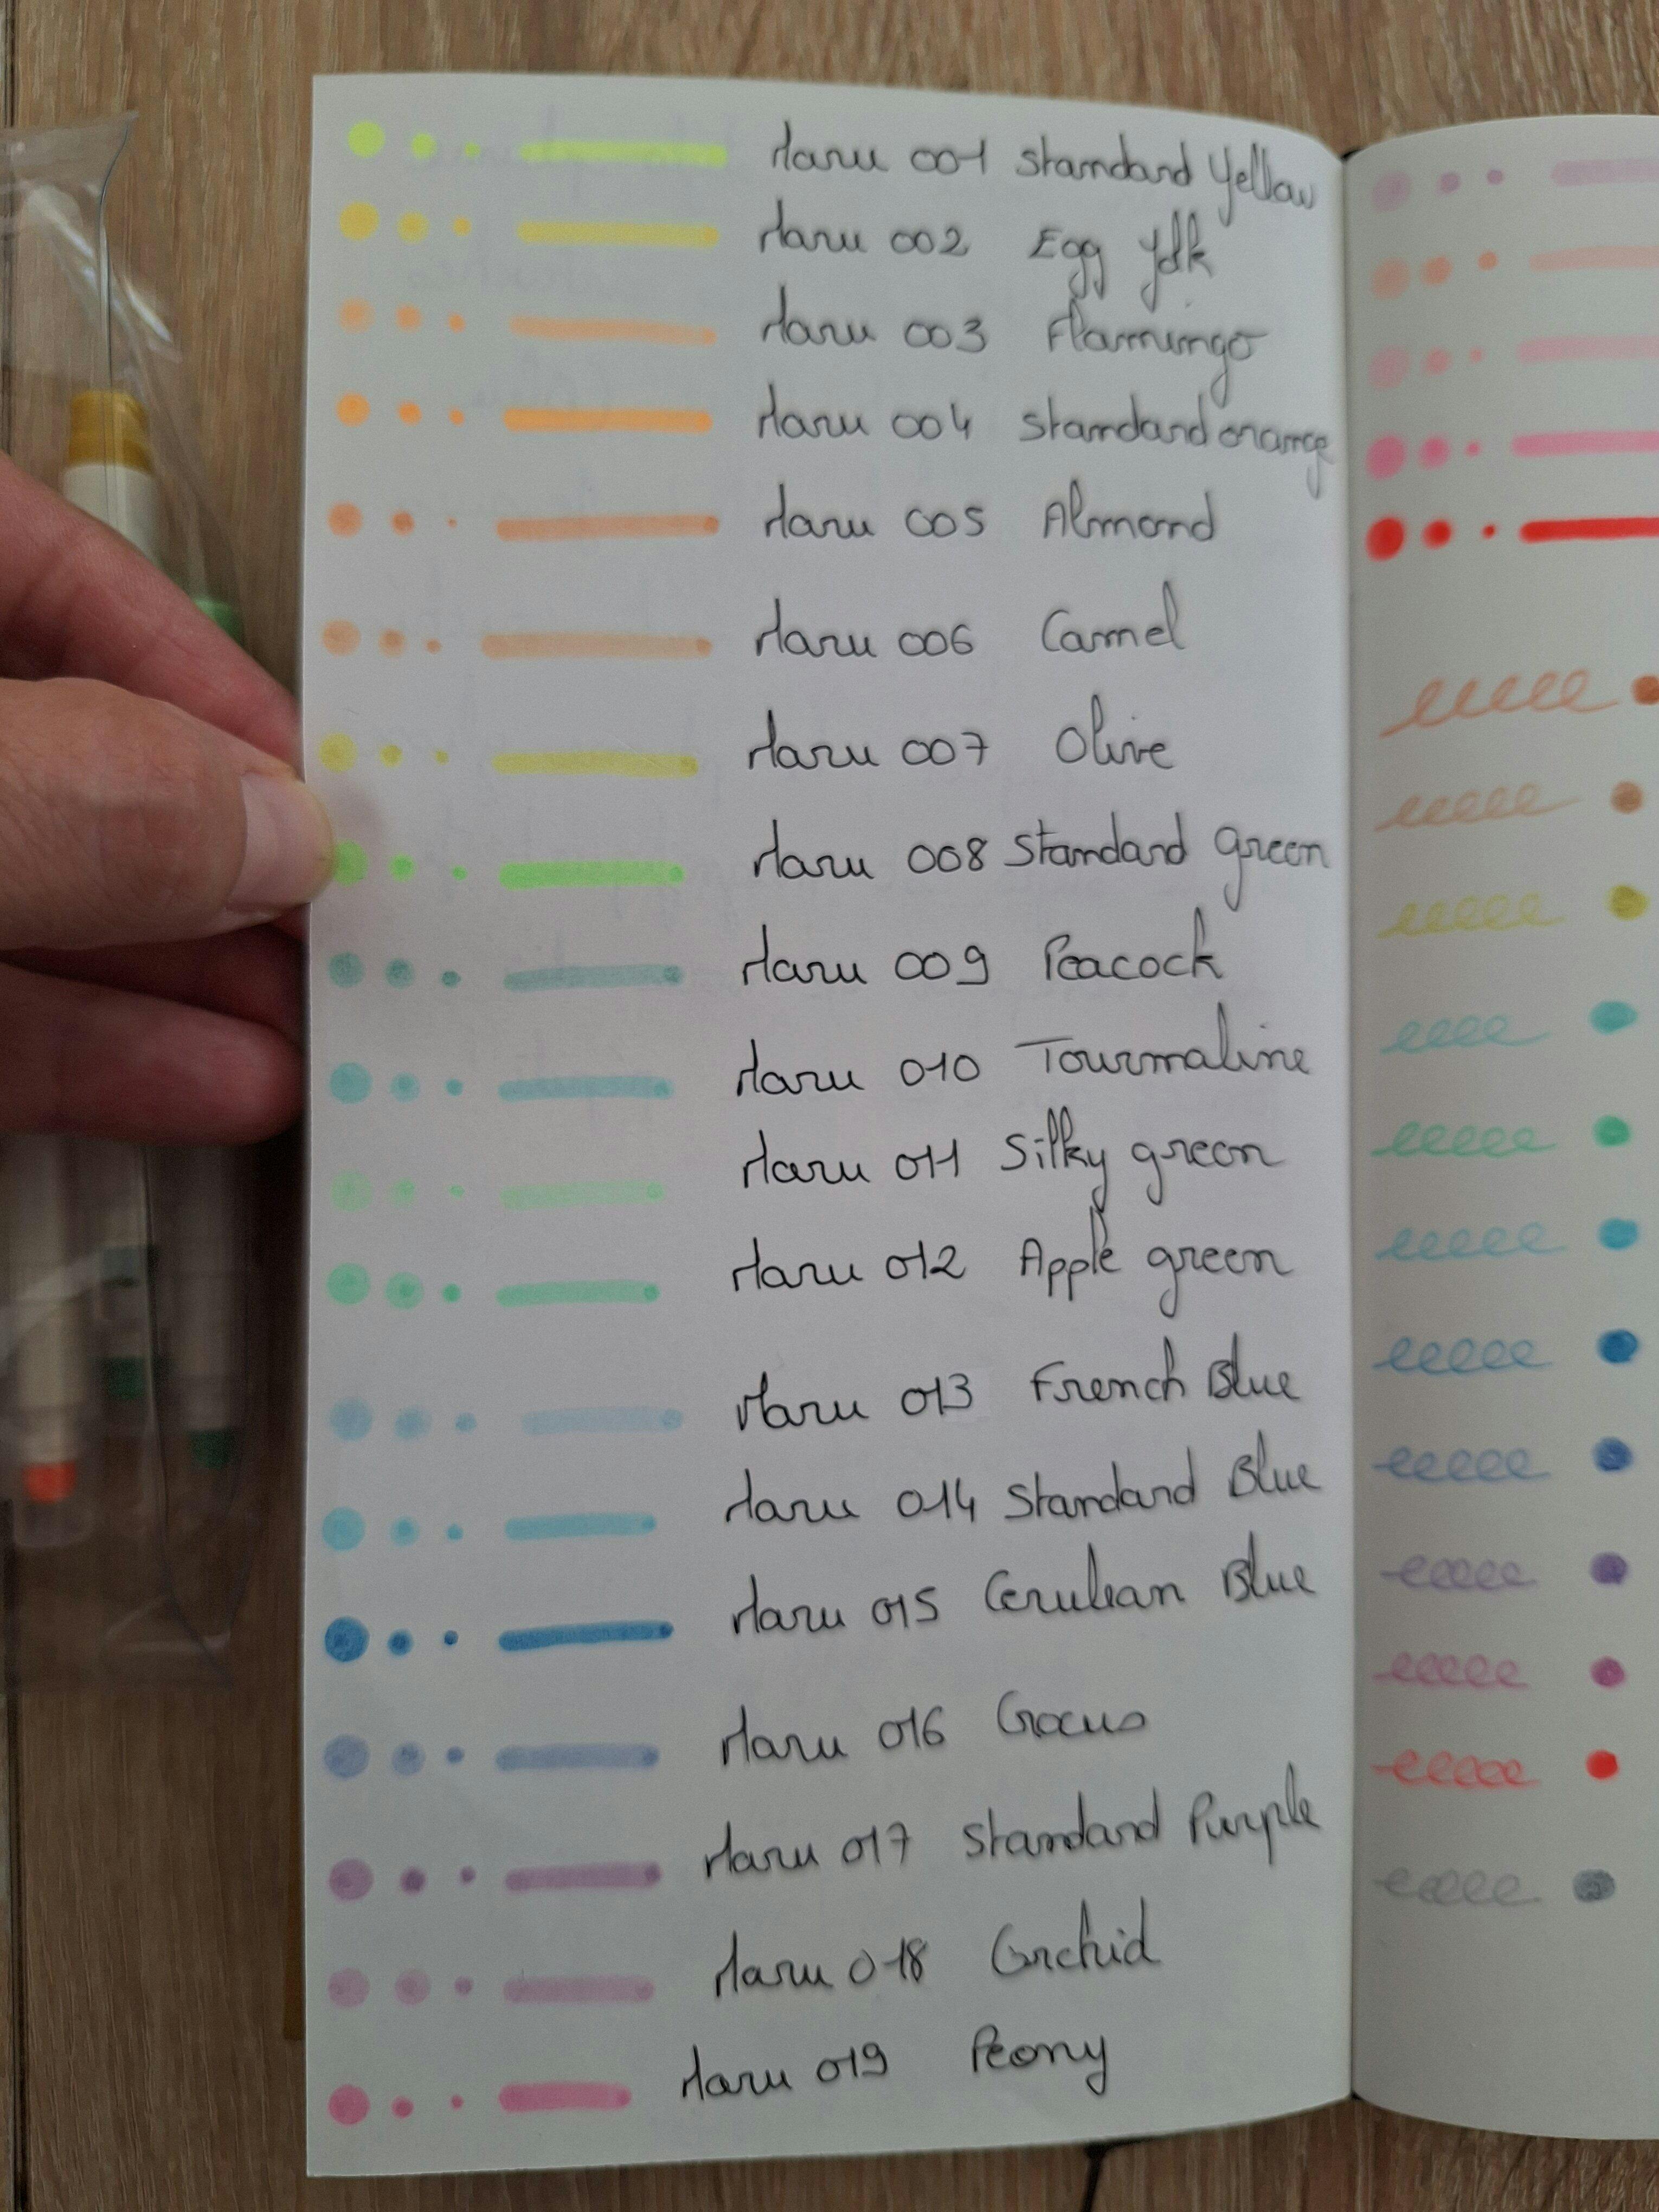 Maru 001 Standard Yellow
Maru 002 Egg Yolk
Maru 003 Flamingo
Maru 004 Standard orange
Maru 005 Almond
Maru 006 Camel
Maru 007 Olive
Maru 008 Standard green
Maru 009 Peacock
Maru 010 Tourmaline
Maru 011 Silky green
Maru 012 Apple green
Maru 013 French Blue
Maru 014 Standard Blue
Maru 015 Cerulean Blue
Maru 016 Crocus
Maru 017 Standard Purple
Maru 018 Orchid
Maru 019 Peony